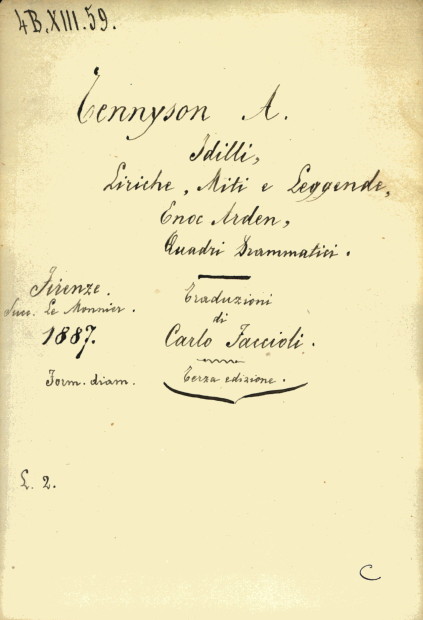 4B.XIII.59.
Tennyson A.
Idilli,
Liriche, Miti e Leggende,
Enoc Arden,
Quadri Drammatici.
Firenze.
Succ. Le Monnier.
1887.
Form. diam.
Traduzioni
di
Carlo Faccioli.
Terza edizione.
L. 2.
C